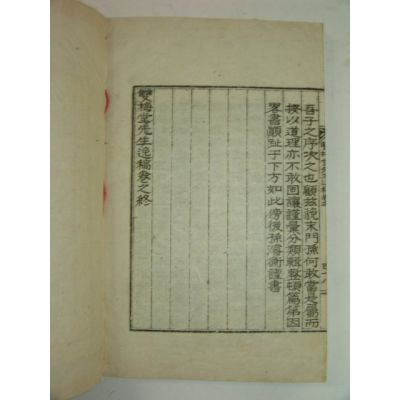 吾子之序次之也顧玆晩末門孫何敢當是屬而
揆以道理亦不敢固讓謹彙分類輯整頓篇第因
畧書顚趾于下方如此傍後孫海衡謹書
雙梅堂先生逸稿卷之終